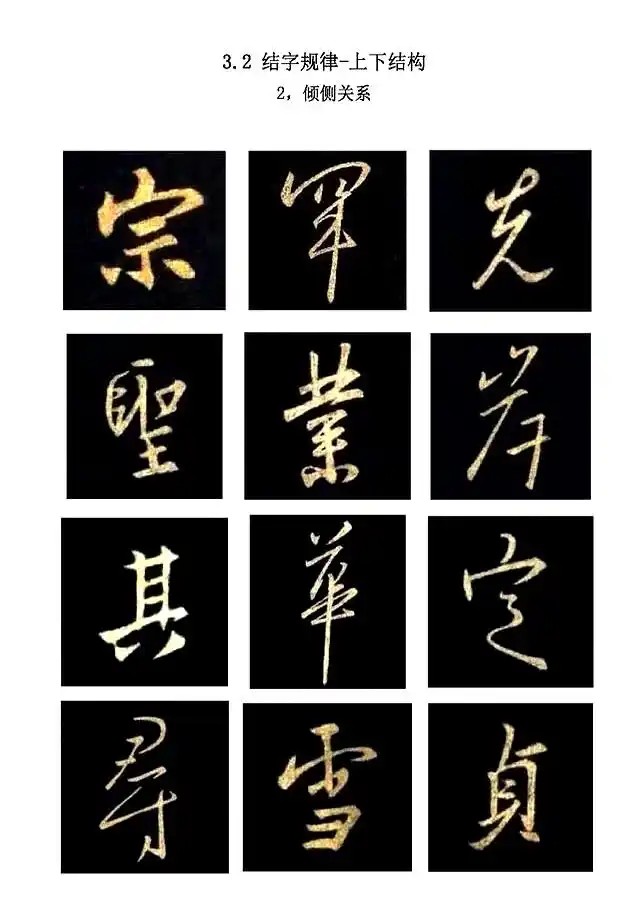 3.2 结字规律-上下结构
2，倾侧关系
宗 罕 先
聖 業 岸
其 華 定
尋 雪 貞